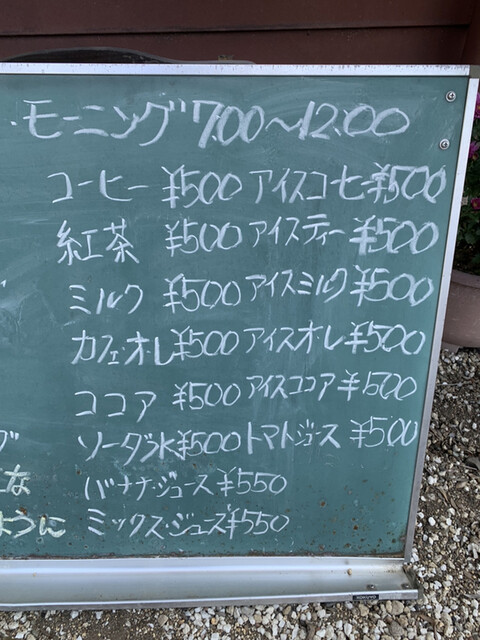 モーニング 7.00〜12.00
コーヒー ¥500 アイスコーヒー ¥500
紅茶 ¥500 アイスティー ¥500
ミルク ¥500 アイスミルク ¥500
カフェ・オレ ¥500 アイスオ・レ ¥500
ココア ¥500 アイスココア ¥500
ソーダ水 ¥500 トマトジュース ¥500
バナナ・ジュース ¥550
ように ミックス・ジュース ¥550
KOKUYO